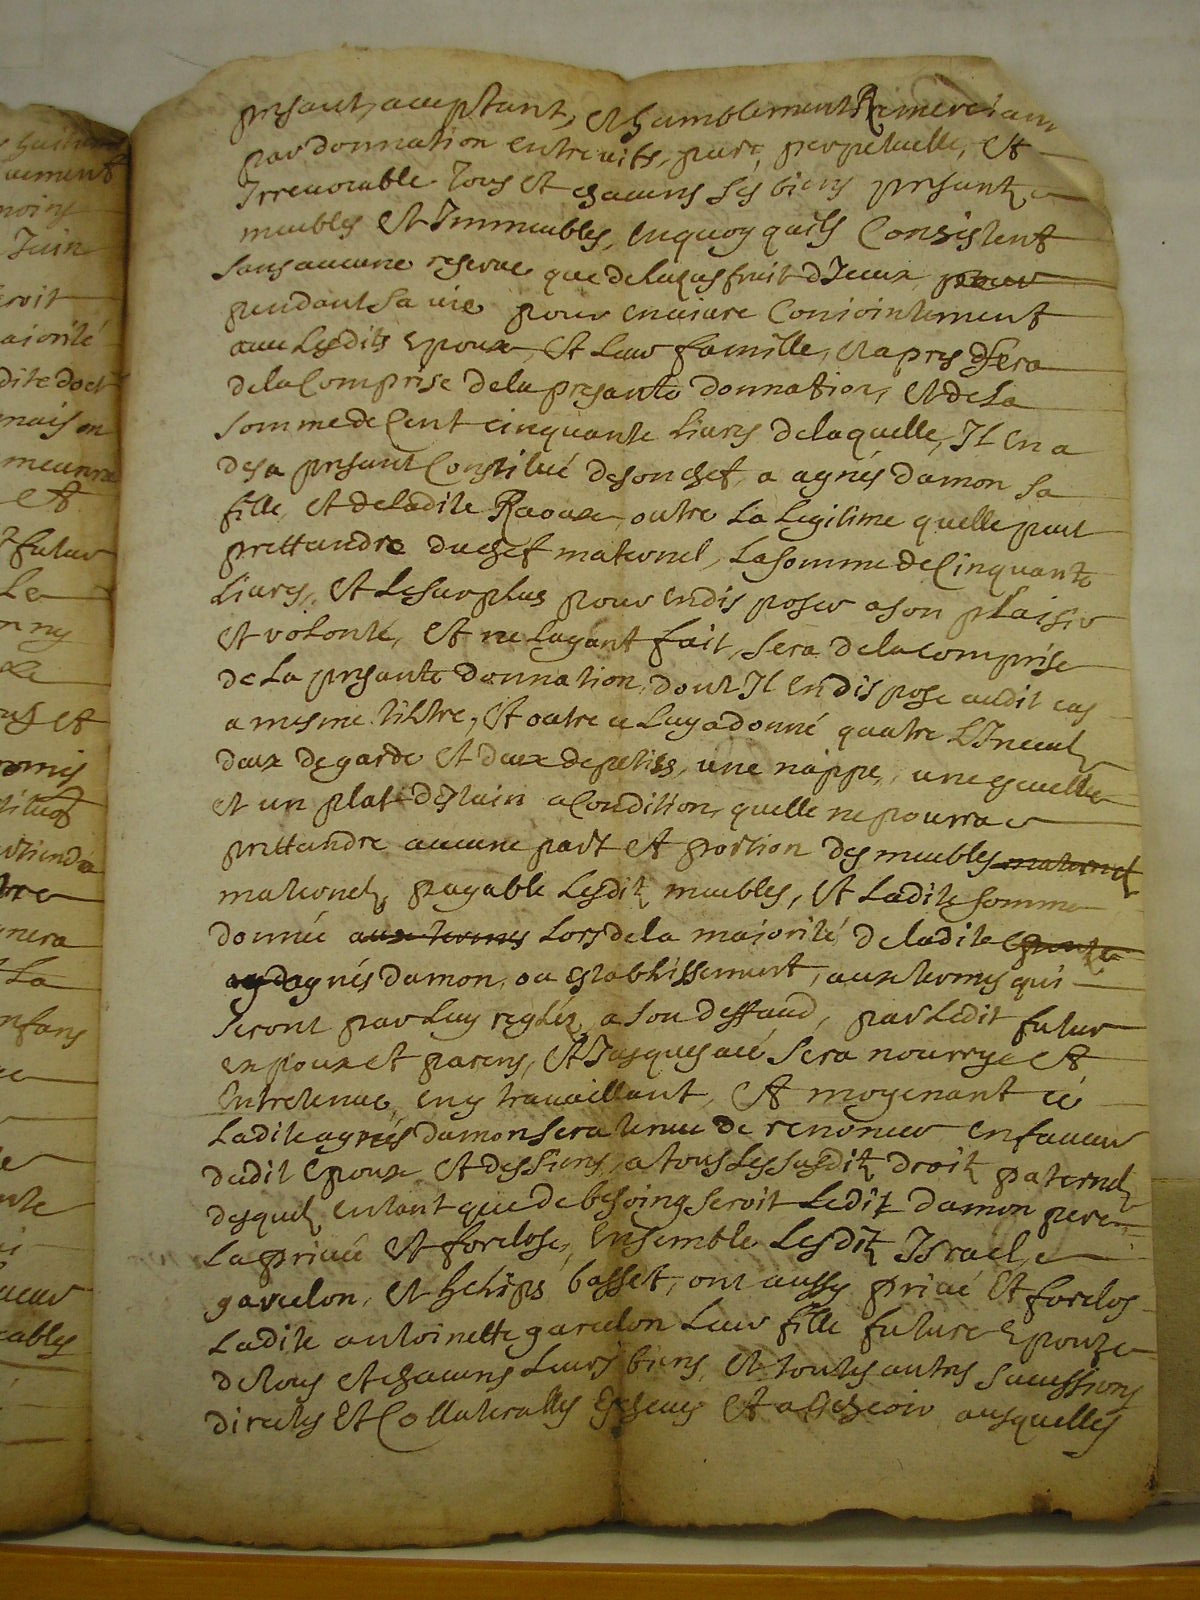 presant, acceptant, et humblement Remerciant
par donnation entre vifs, pure, perpetuelle, et
Irrevocable Tous et chacuns ses biens presantz
meubles et Immeubles, enquoy quils Consistent
sans aucune reserve que de lusufruit dIceux, pour
pendant sa vie pour en vivre Conjointement
avec Lesdits Epoux, et Leur famille, et apres sera
de la Comprise de la presante donnation, et de La
somme de Cent cinquante Livres de laquelle, Il en a
des a presant Constitué de son chef, a agnés damon sa
fille, et de ladite Raoux, outre La Legitime quelle peut
prettandre du chef maternel, La somme de Cinquante
Livres, et Le surplus pour en disposer a son plaisir
et volonté, et ne layant fait, sera de la comprise
de La presante donnation, dont Il en dispose audit cas
a mesme tiltre, et outre ce Luy a donné quatre LInceulz
deux de garde et deux de petiss, une nappe, une escuelle
et un plat destain a Condition, quelle ne pourra
prettandre aucune part et portion des meubles maternelz
maternelz, payable Lesditz meubles, et Ladite somme
donnée aux termes Lors de la majorité, de ladite
agnés damon, ou establissement, aux termes qui
seront par Luy reglez, a son deffaud, par Ledit futur
expoux et parens, et Jusques a cé sera nourrye et
Entretenue, en y travaillant, et moyenant cé
Ladite agnés damon sera tenue de renoncer en faveur
dudit Epoux et des siens, a tous Les susditz droitz paternelz
desquelz entant que de besoing seroit Ledit damon pere
La privée et forclose, Ensemble Lesditz Israel
garcelon, et basset, ont aussy privé et forclos
Ladite antoinette garcelon Leur fille future Epouze
de tous et chacuns Leurs biens, et toutes autres successions
directes et Collateralles Escheues et a Escheoir ausquelles